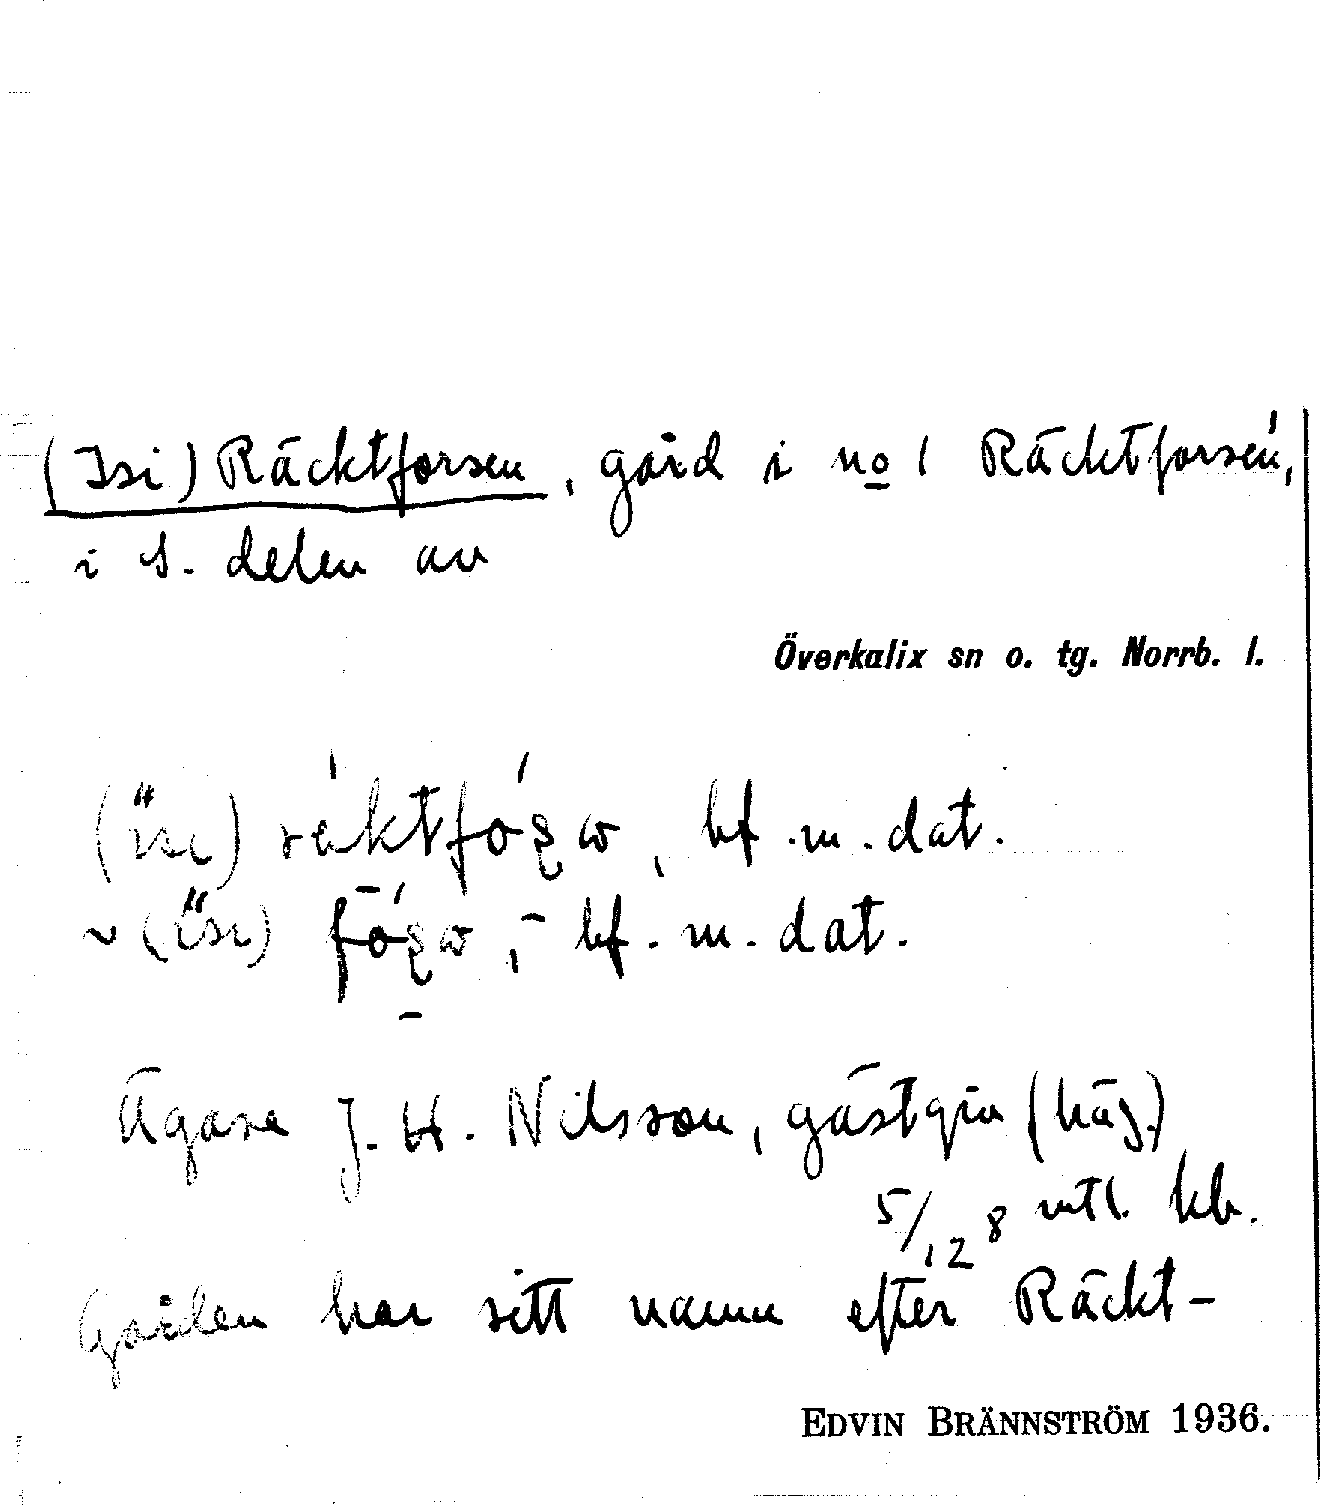 (Isi) Räcktforsen, gård i no 1 Räcktforsen,
i s. delen av
Överkalix sn o. tg. Norrb. l.
bf. m. dat.
~ bf. m. dat.
Ägare J. H. Nilsson, gästgiv (häg.)
5/128 mtl. kb.
Gården har sitt namn efter Räckt-
EDVIN BRÄNNSTRÖM 1936.